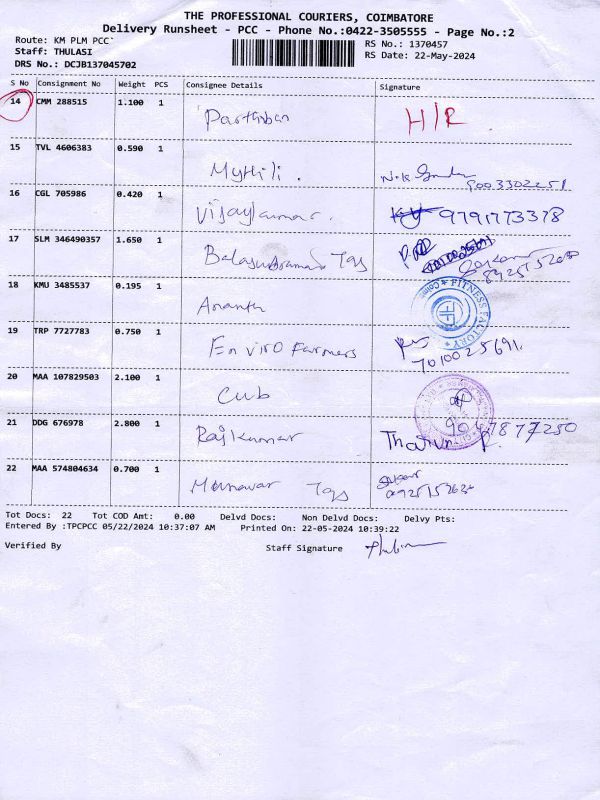 THE PROFESSIONAL COURIERS, COIMBATORE
Delivery Runsheet - PCC - Phone No.:0422-3505555 - Page No.:2
Route: KM PLM PCC`
Staff: THULASI
DRS No.: DCJB137045702
RS No.: 1370457
RS Date: 22-May-2024
S No Consignment No Weight PCS Consignee Details Signature
14 CMM 288515 1.100 1
Parthiban H/R
15 TVL 4606383 0.590 1
Mythili.
9003302251
16 CGL 705986 0.420 1
Vijaykumar. 9791773378
17 SLM 346490357 1.650 1
Tgs
18 KMU 3485537 0.195 1
Ananth FITNESS FACTORY
19 TRP 7727783 0.750 1
Enviro Farmers
7010025691.
20 MAA 107829503 2.100 1
Cub
21 DDG 676978 2.800 1
Rajkumar Tharun
22 MAA 574804634 0.700 1
Tgs
Tot Docs: 22 Tot COD Amt: 0.00 Delvd Docs: Non Delvd Docs: Delvy Pts:
Entered By :TPCPCC 05/22/2024 10:37:07 AM Printed On: 22-05-2024 10:39:22
Verified By Staff Signature